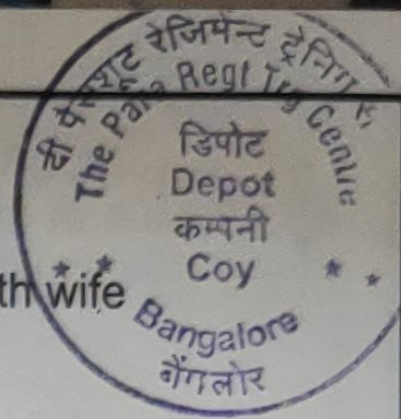 दी पैराशूट रेजिमेन्ट ट्रेनिंग
The Para Regt Trg Centre
डिपोट
Depot
कम्पनी
Coy
th wife
Bangalore
बैंगलोर